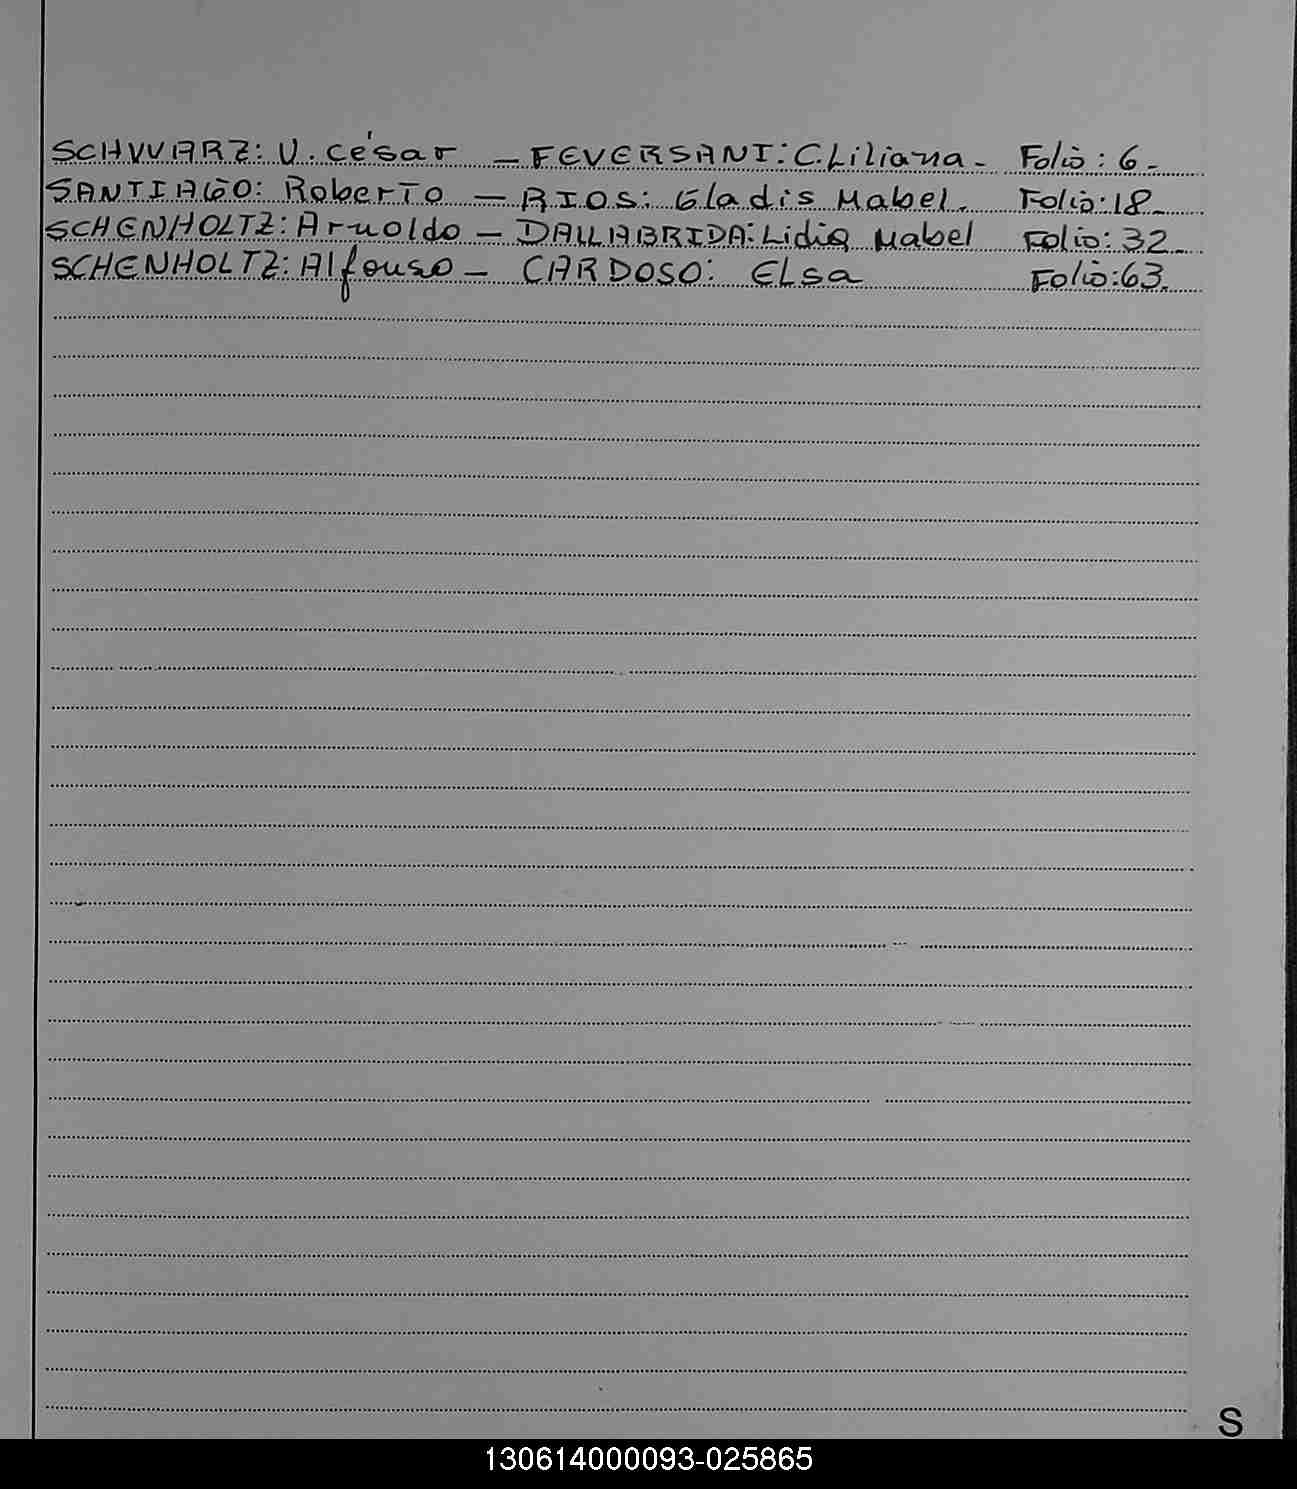 SCHWARZ: V. César — FEVERSANI: C. Liliana - Folio: 6.-
SANTIAGO: Roberto — RIOS: Gladis Mabel. Folio: 18.-
SCHENHOLTZ: Arnoldo — DALLABRIDA: Lidia Mabel Folio: 32.-
SCHENHOLTZ: Alfonso — CARDOSO: ELsa Folio: 63.
S
130614000093-025865